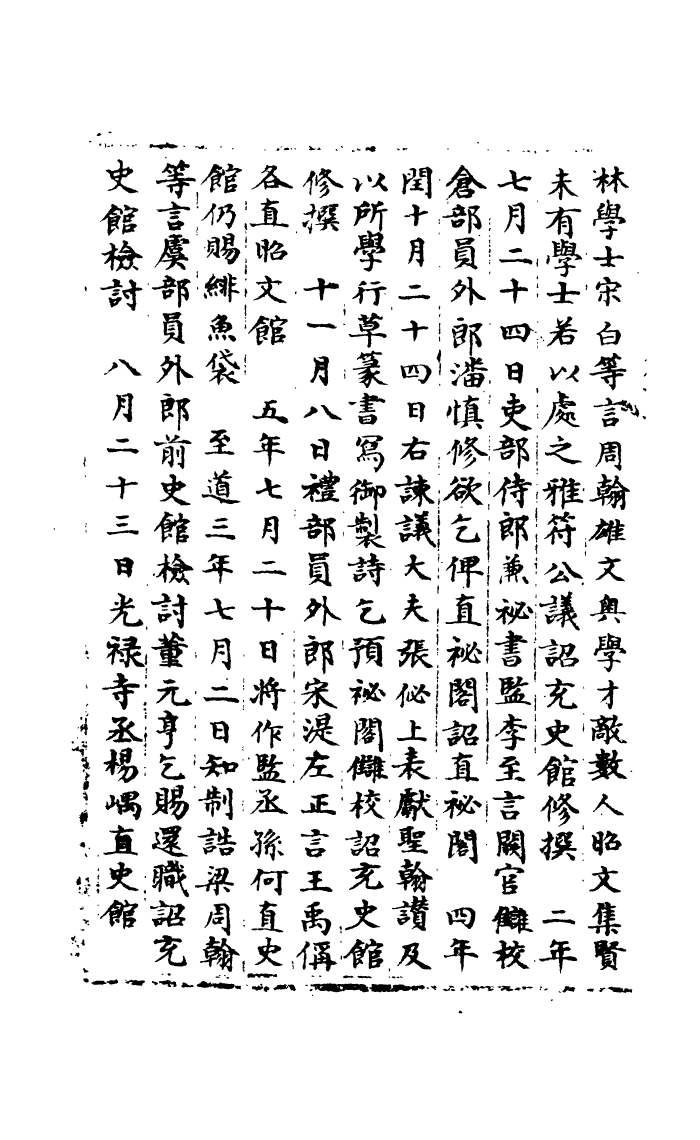 林學士宋白等言周翰雄文奧學才敵數人昭文集賢
未有學士若以處之雅符公議詔充史館修撰　二年
七月二十四日吏部侍郎兼祕書監李至言闕官讎校
倉部員外郎潘慎修欲乞俾直祕閣詔直祕閣　四年
閏十月二十四日右諫議大夫張佖上表獻聖翰讚及
以所學行草篆書寫御製詩乞預祕閣讎校詔充史館
修撰　十一月八日禮部員外郎宋湜左正言王禹偁
各直昭文館　五年七月二十日將作監丞孫何直史
館仍賜緋魚袋　至道三年七月二日知制誥梁周翰
等言虞部員外郎前史館檢討董元亨乞賜還職詔充
史館檢討　八月二十三日光祿寺丞楊嵎直史館